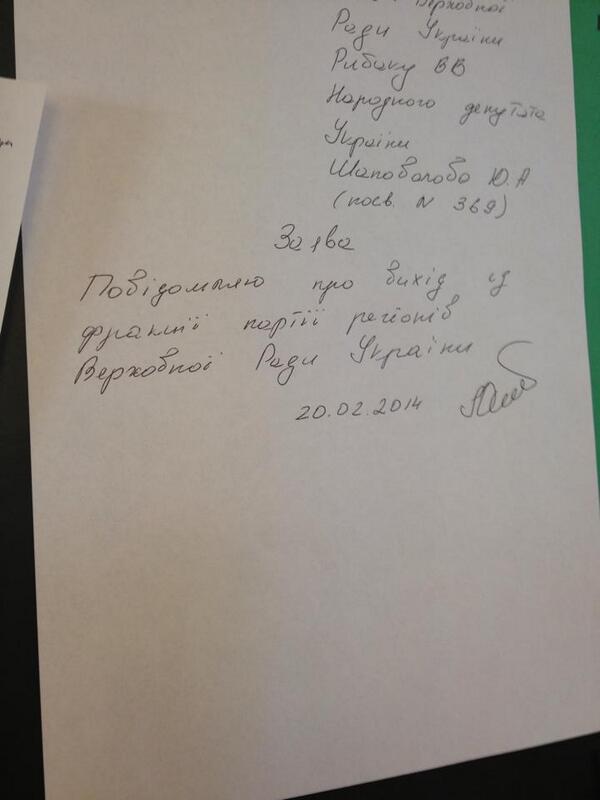 Верховної
Ради України
Рибаку ВВ
Народного депутата
України
Шаповалова Ю.А
(посв. N 369)
Заява
Повідомляю про вихід із
фракції партії регіонів
Верховної Ради України
20.02.2014